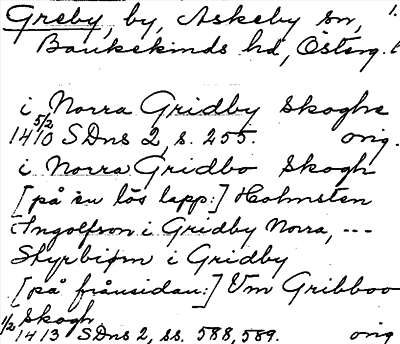 Greby, by, Askeby sn, 1.
Bankekinds hd, Österg. l
i Norra Gridby Skoghe
5/2 1410 SDns 2, s. 255. orig.
i Norra Gridbo Skogh
[på en lös lapp:] Holmsten
Ingolfson i Gridby Norra, ---
Styrbiørn i Gridby
[på frånsidan:] Vm Gribboo
skogh
1/2 1413 SDns 2, ss. 588, 589. orig